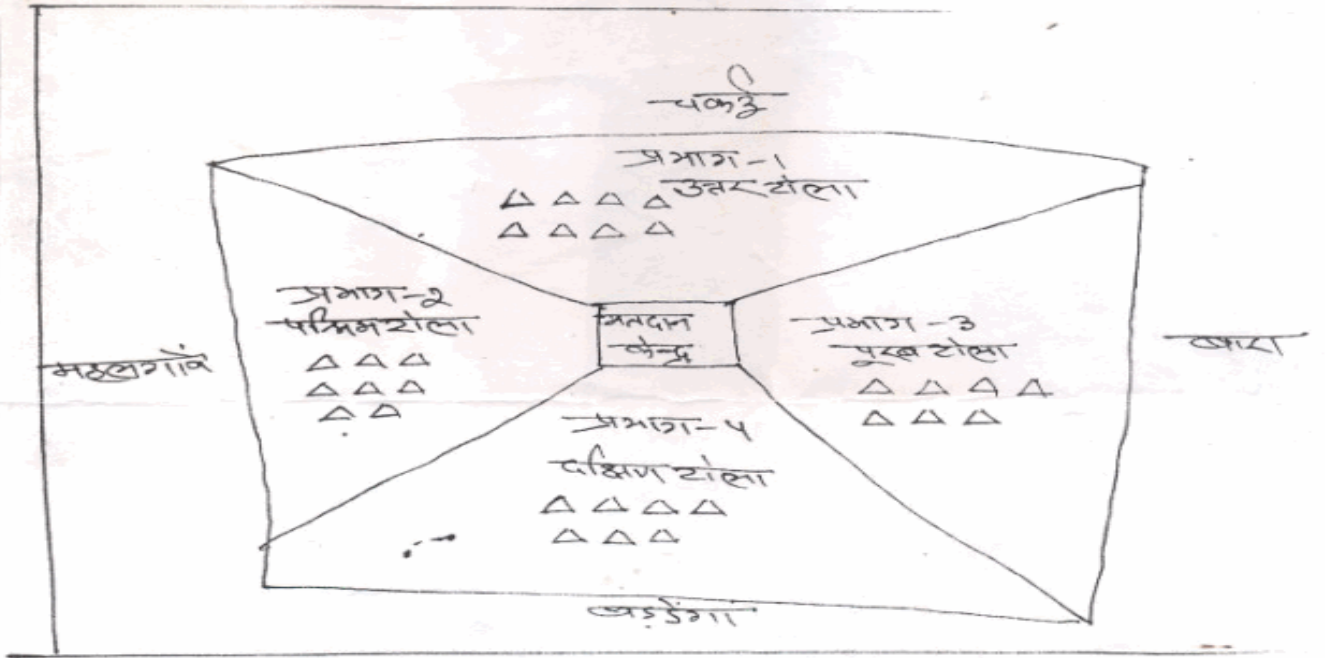 चकई
प्रभाग-१
उत्तर टोला
प्रभाग-२
पश्चिम टोला
महलगाँव
मतदान
केन्द्र
प्रभाग-3
पूरब टोला
बारा
प्रभाग-4
दक्षिण टोला